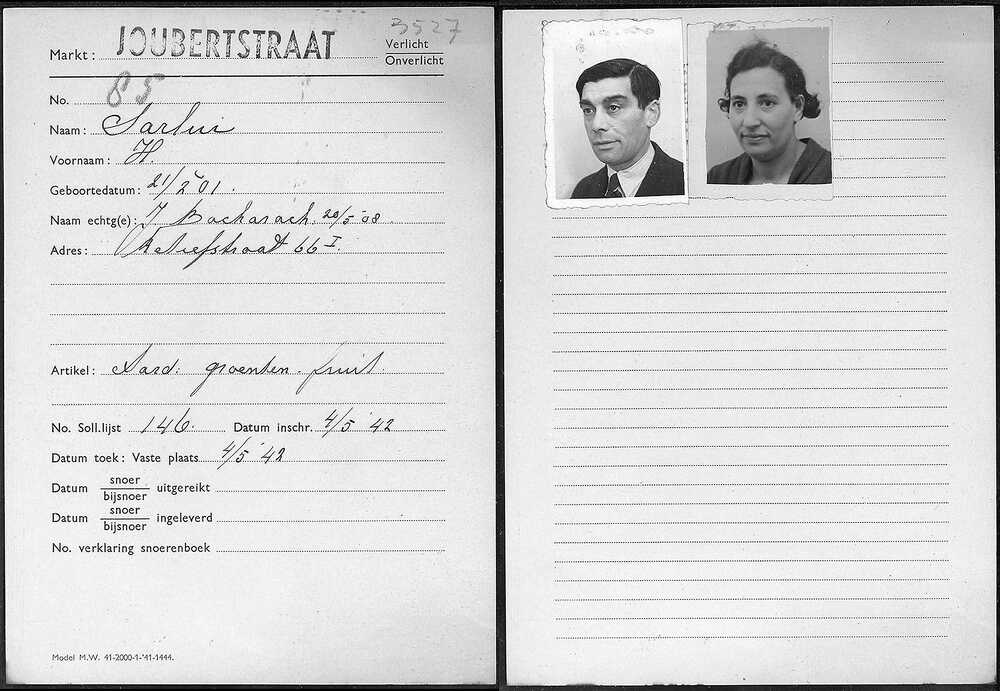 3527
Markt: JOUBERTSTRAAT
Verlicht
Onverlicht
No. 85
Naam: Sarlui
Voornaam: H.
Geboortedatum: 21/2 '01.
Naam echtg(e): J Bacharach. 20/5-'08
Adres: Retiefstraat 66 I.
Artikel: Aard. groenten. fruit.
No. Soll.lijst 146. Datum inschr. 4/5 '42
Datum toek: Vaste plaats 4/5 '42
Datum snoer/bijsnoer uitgereikt
Datum snoer/bijsnoer ingeleverd
No. verklaring snoerenboek
Model M.W. 41-2000-1-'41-1444.